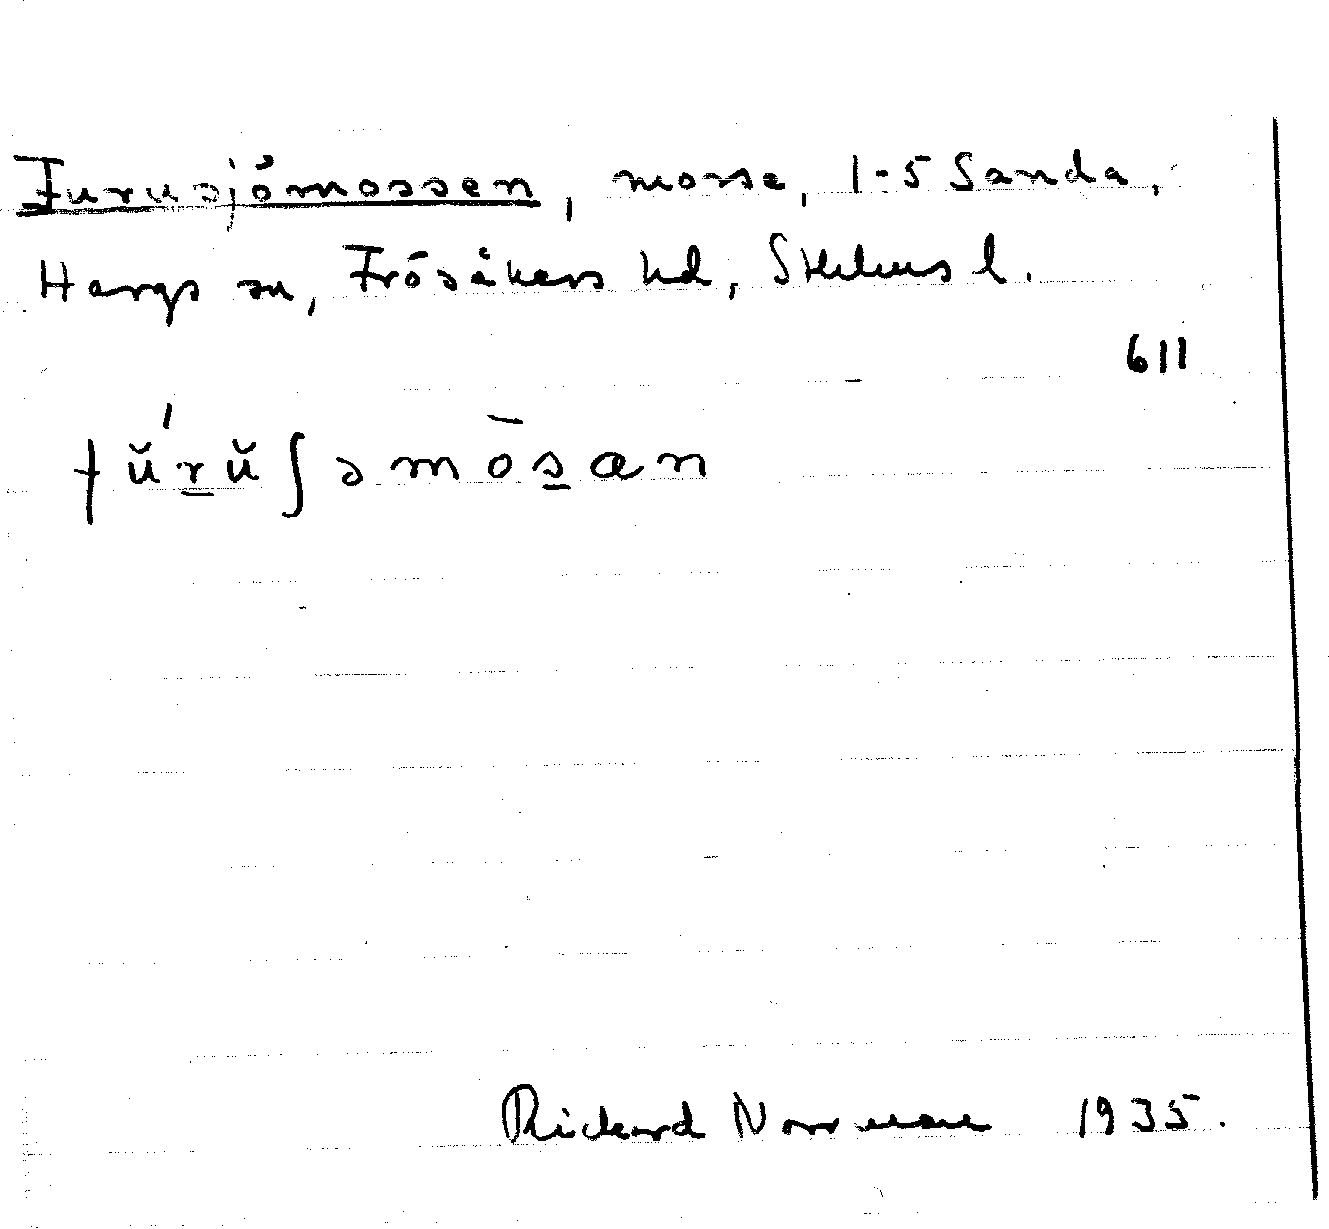 Furusjömossen, mosse, 1-5 Sanda,
Hargs sn, Frösåkers hd, Sthlms l.
611
fŭ́r̲ŭʃəmòs̲an
Rickard Norrman 1935.